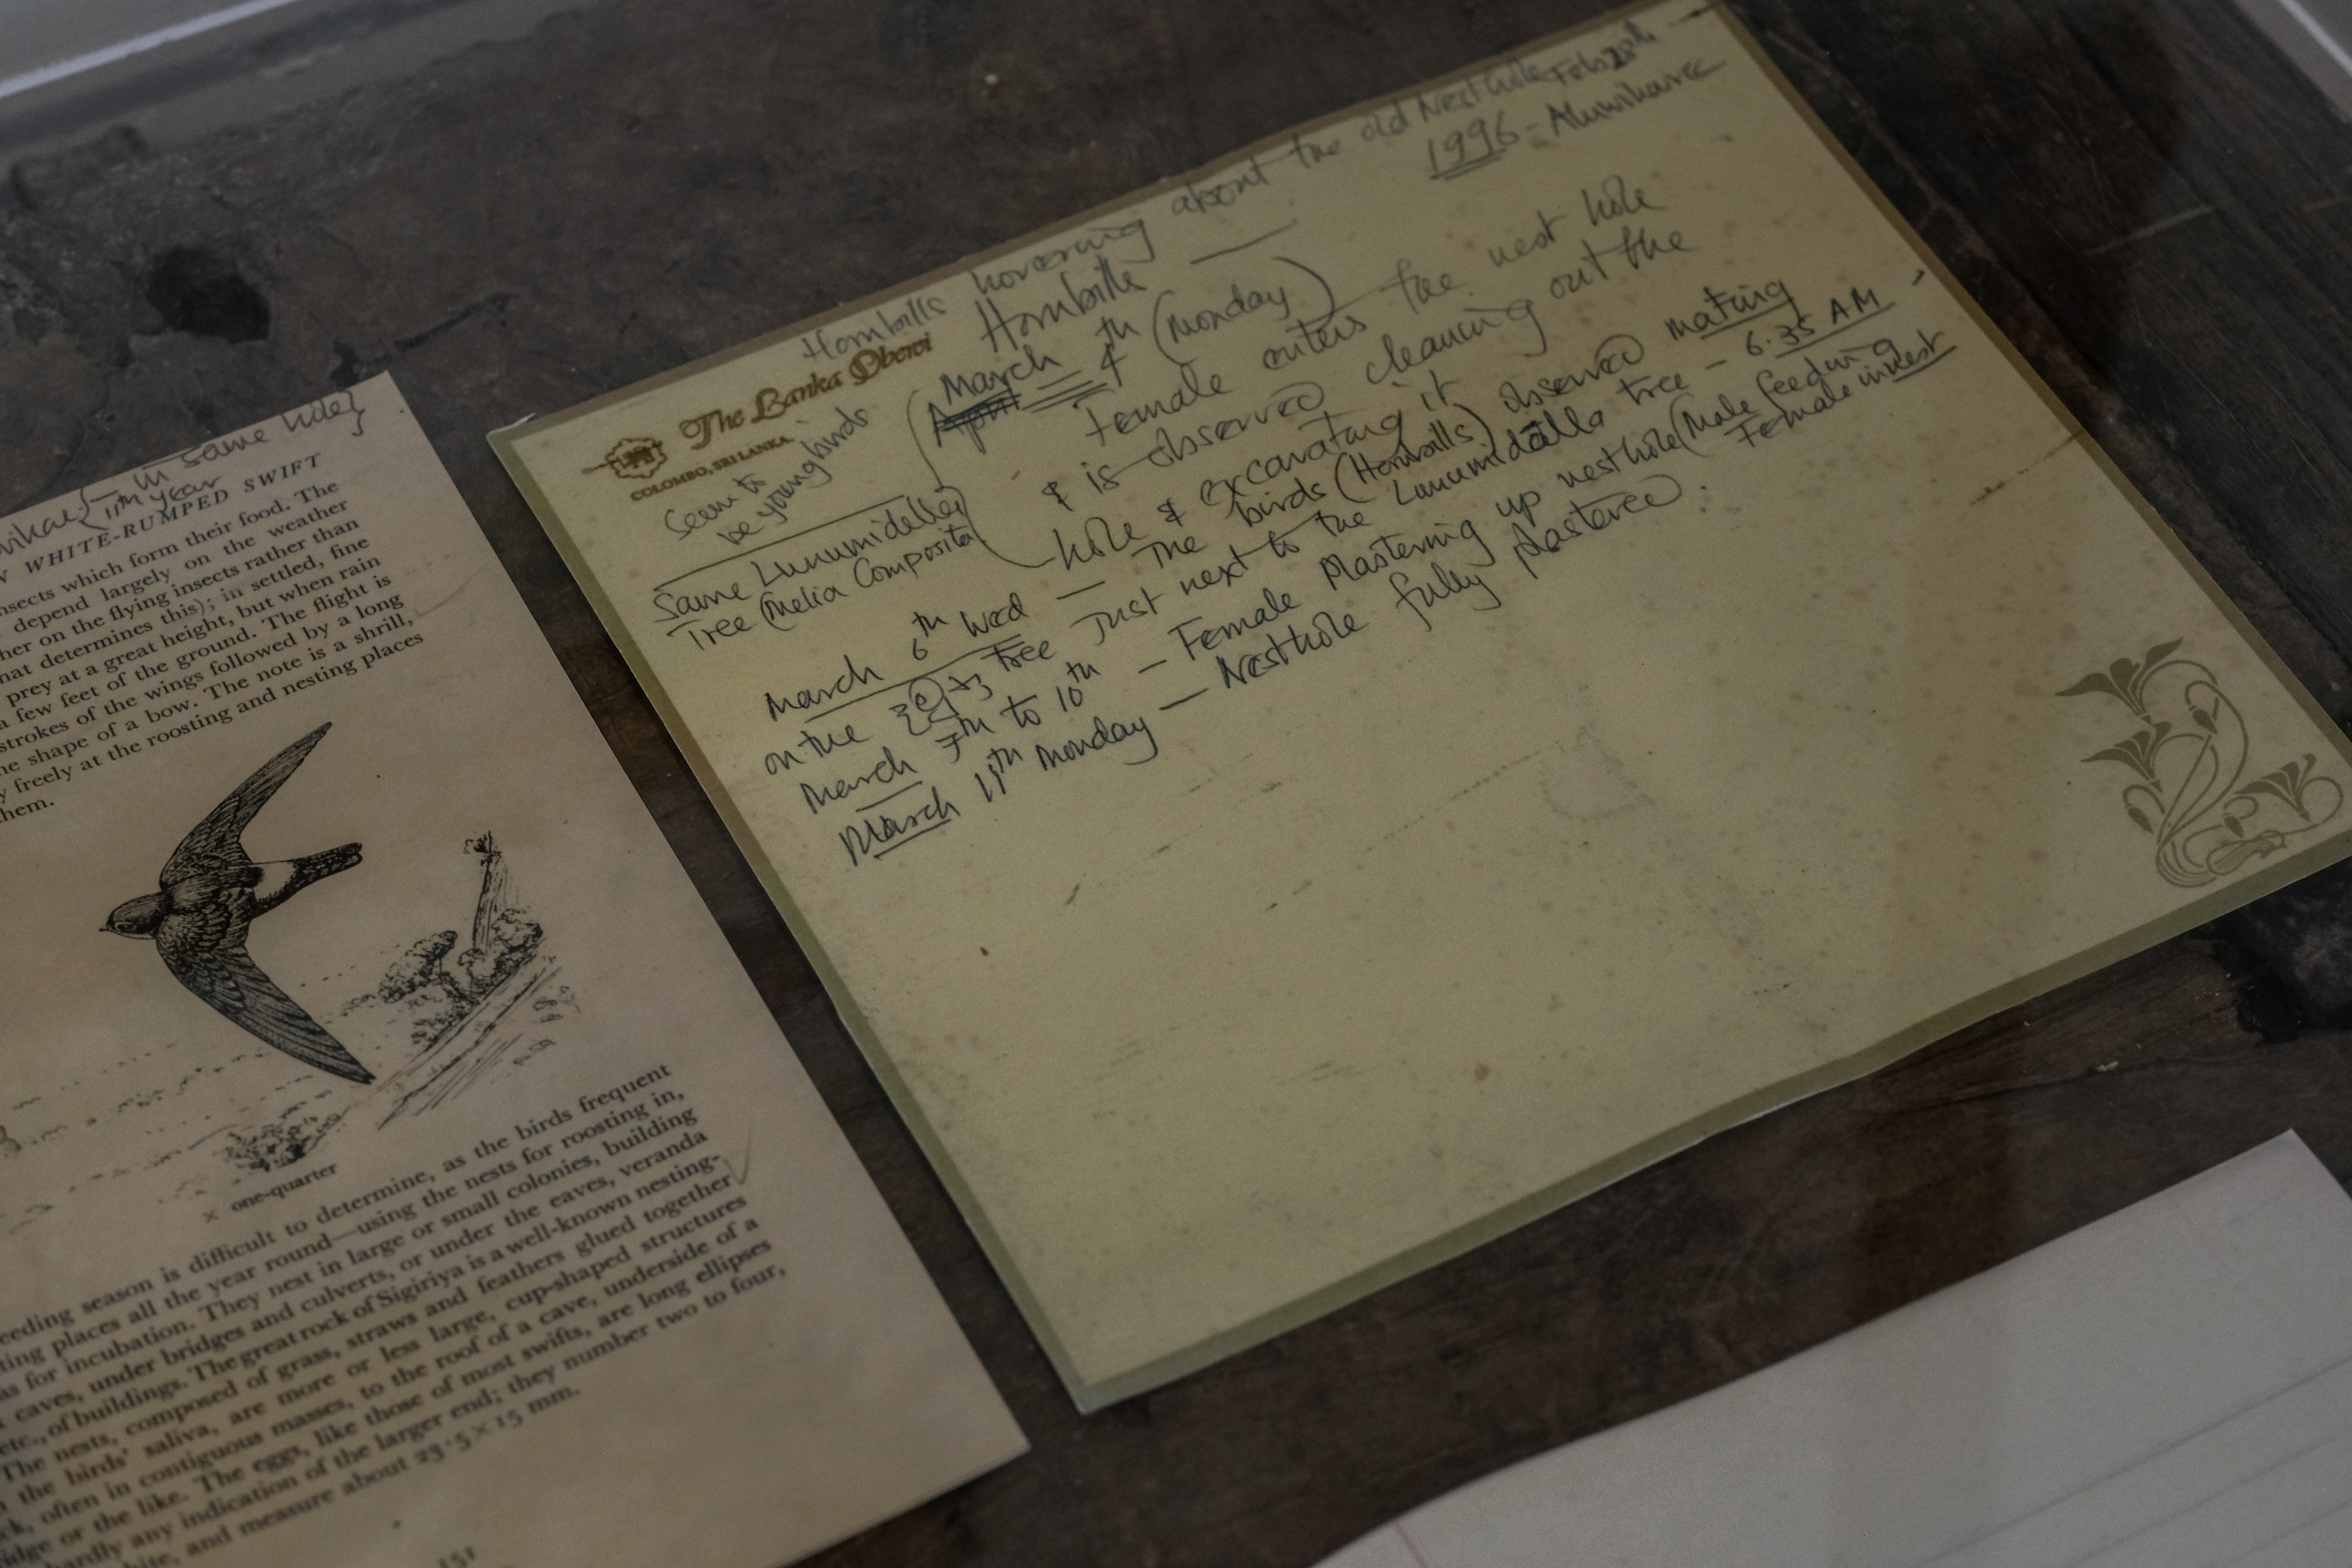 in same hole}
11th year
WHITE-RUMPED SWIFT
insects which form their food. The
depend largely on the weather
on the flying insects rather than
that determines this); in settled, fine
prey at a great height, but when rain
a few feet of the ground. The flight is
strokes of the wings followed by a long
the shape of a bow. The note is a shrill,
freely at the roosting and nesting places
them.
× one-quarter
breeding season is difficult to determine, as the birds frequent
places all the year round—using the nests for roosting in,
as for incubation. They nest in large or small colonies, building
caves, under bridges and culverts, or under the eaves, veranda
etc., of buildings. The great rock of Sigiriya is a well-known nesting-
The nests, composed of grass, straws and feathers glued together
the birds' saliva, are more or less large, cup-shaped structures
often in contiguous masses, to the roof of a cave, underside of a
or the like. The eggs, like those of most swifts, are long ellipses
hardly any indication of the larger end; they number two to four,
and measure about 23·5 × 15 mm.
151
Hornbills hovering about the old Nest hole Feb 28th
1996 - Aluwihare
The Lanka Oberoi
COLOMBO, SRI LANKA.
Hornbills
March 4th (Monday)
April
Female enters the nest hole
& is observed cleaning out the
hole & excavating it
Seem to
be young birds
Same Lunumidella
Tree (Melia Composita)
March 6th Wed — The birds (Hornbills) observed mating
on the tree Just next to the Lunumidella tree - 6.35 AM
March 7th to 10th — Female Plastering up nest hole (Male feeding
Female in nest
March 11th Monday — Nesthole fully plastered.